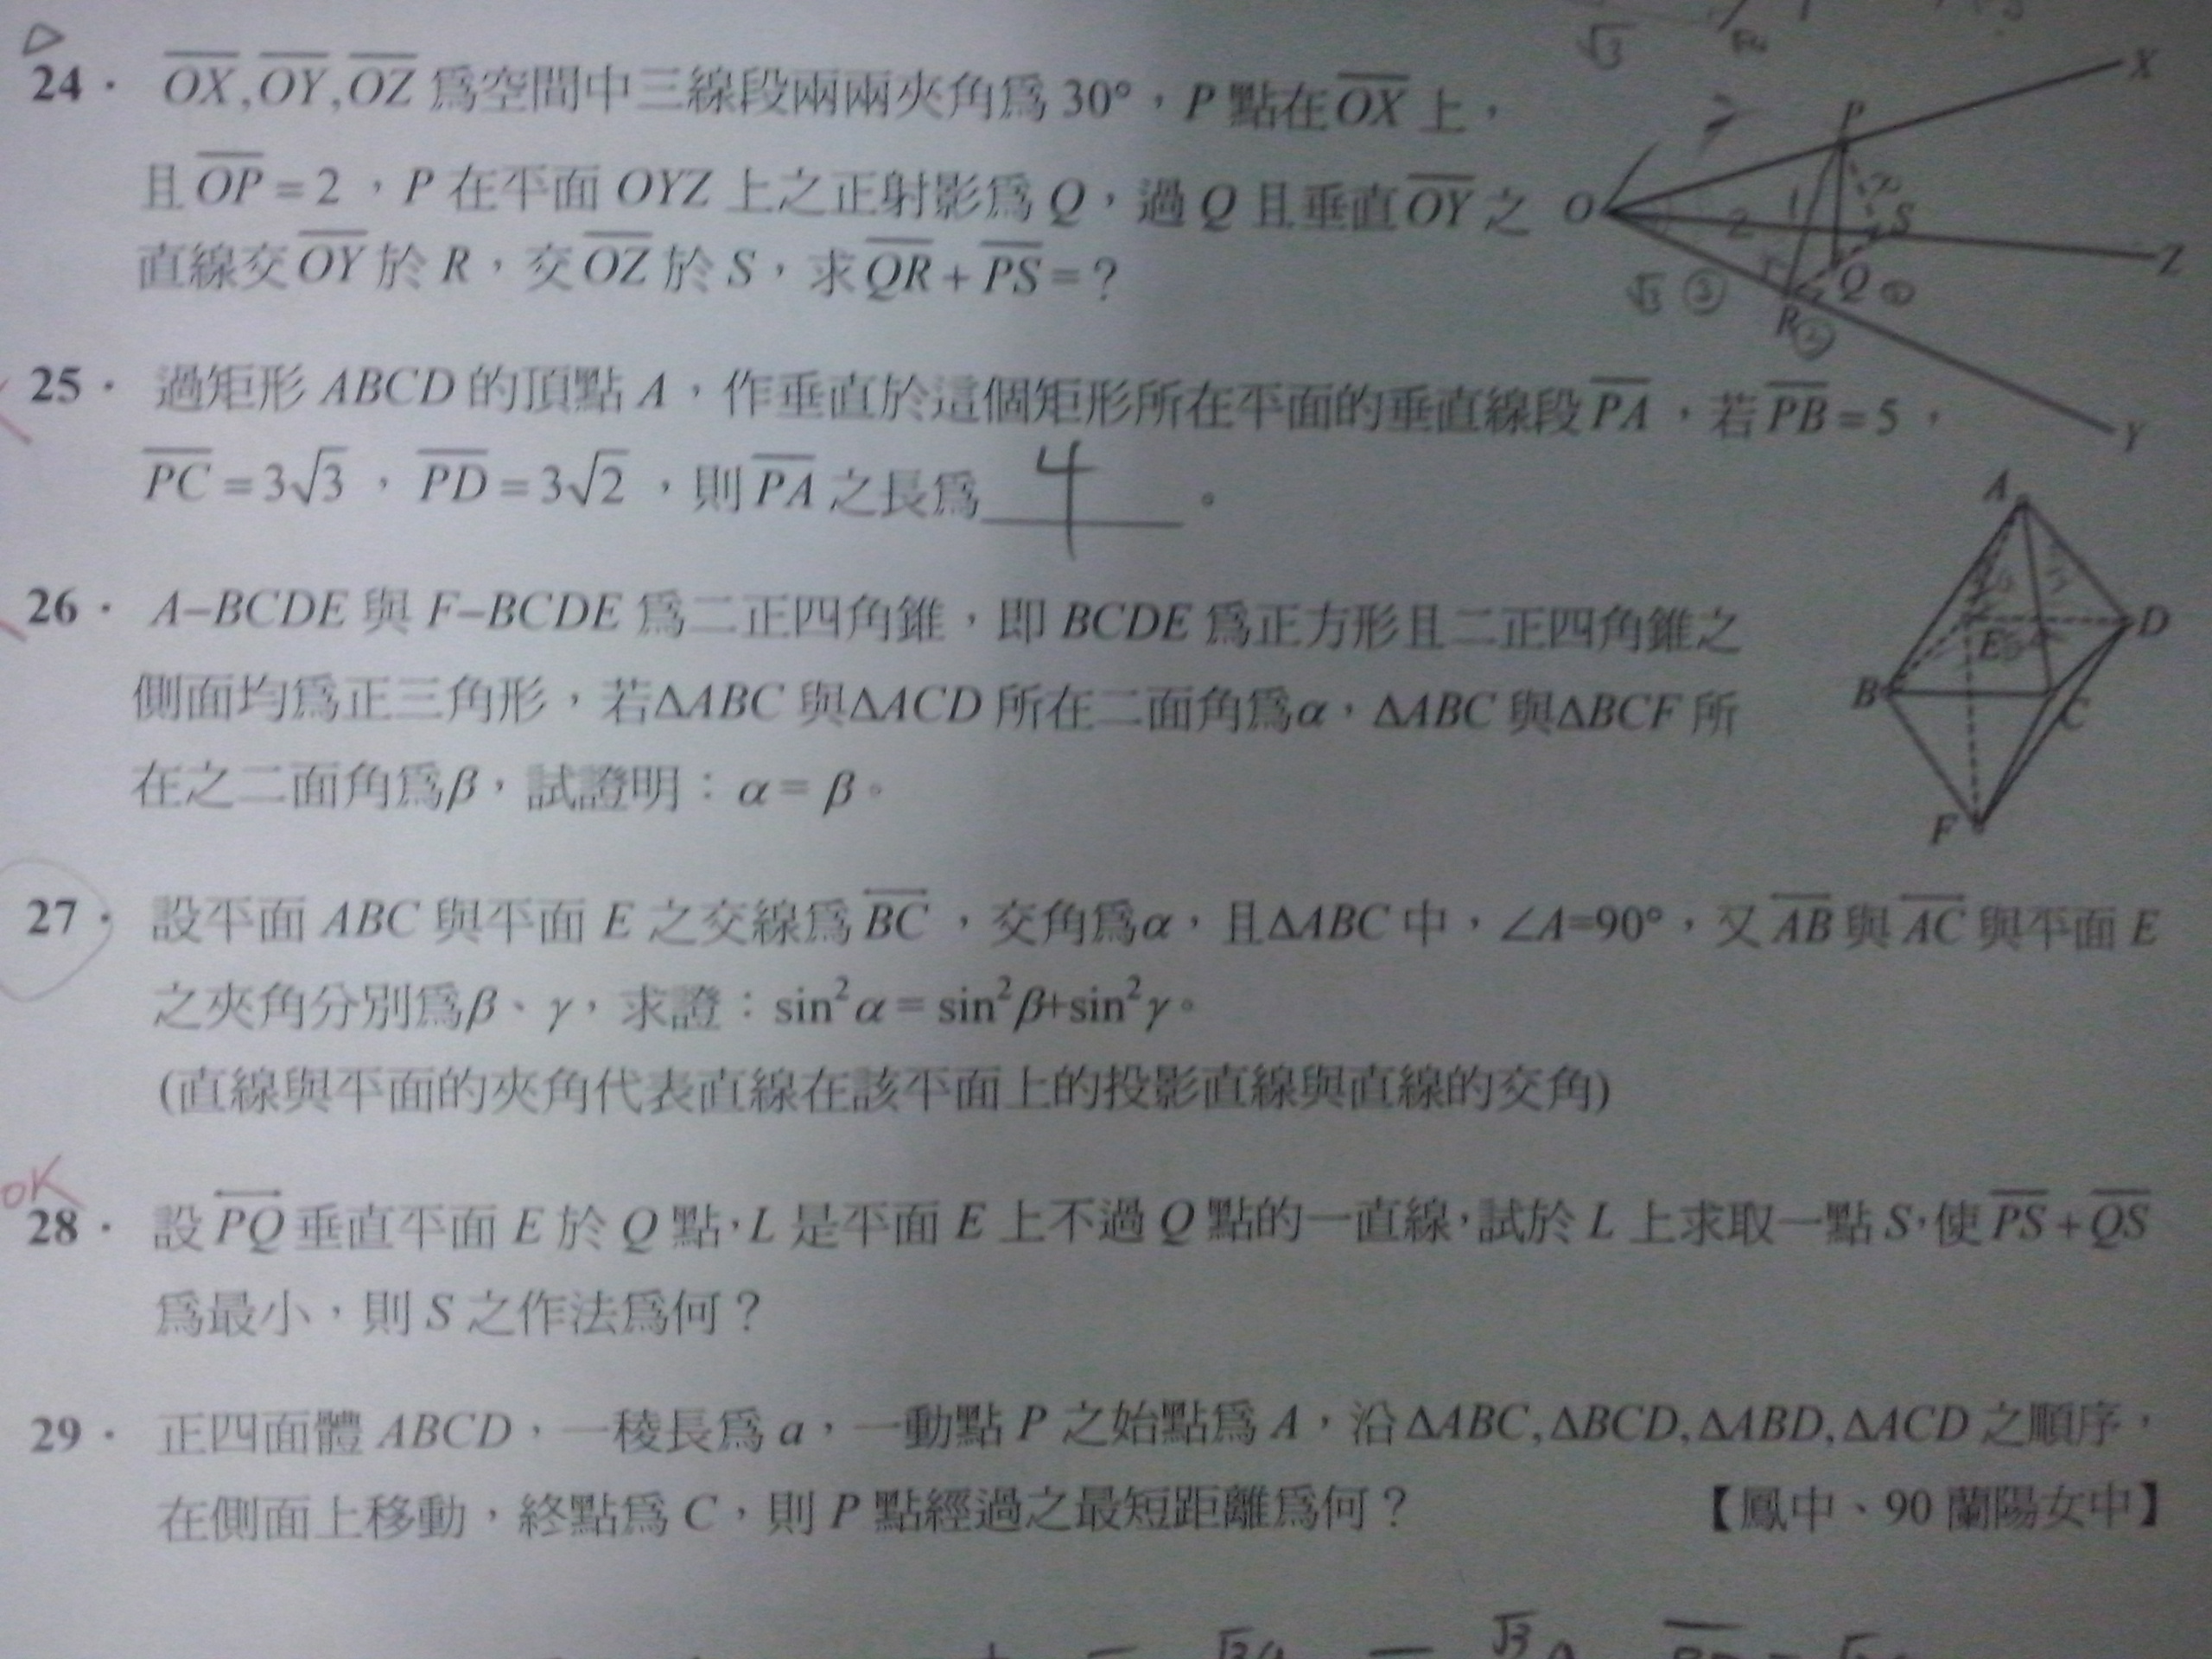 24． OX,OY,OZ 爲空間中三線段兩兩夾角爲 30°，P 點在OX 上，
且OP = 2 ，P 在平面 OYZ 上之正射影爲 Q，過 Q 且垂直OY 之
直線交OY 於 R，交OZ 於 S，求QR + PS = ?
√3
X
P
O
2
1
S
Z
√3 ③
Q ①
R ②
Y
25． 過矩形 ABCD 的頂點 A，作垂直於這個矩形所在平面的垂直線段PA，若PB = 5，
PC = 3√3 ，PD = 3√2 ，則PA 之長爲 4 。
26． A–BCDE 與 F–BCDE 爲二正四角錐，即 BCDE 爲正方形且二正四角錐之
側面均爲正三角形，若ΔABC 與ΔACD 所在二面角爲α，ΔABC 與ΔBCF 所
在之二面角爲β，試證明：α = β。
A
E
D
B
C
F
27． 設平面 ABC 與平面 E 之交線爲BC ，交角爲α，且ΔABC 中，∠A=90°，又AB與AC與平面 E
之夾角分別爲β、γ，求證：sin²α = sin²β+sin²γ。
(直線與平面的夾角代表直線在該平面上的投影直線與直線的交角)
OK
28． 設PQ垂直平面 E 於 Q 點，L 是平面 E 上不過 Q 點的一直線，試於 L 上求取一點 S，使PS + QS
爲最小，則 S 之作法爲何？
29． 正四面體 ABCD，一稜長爲 a，一動點 P 之始點爲 A，沿ΔABC,ΔBCD,ΔABD,ΔACD 之順序，
在側面上移動，終點爲 C，則 P 點經過之最短距離爲何？ 【鳳中、90 蘭陽女中】